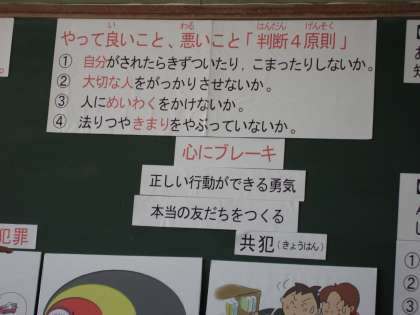 やって良いこと、悪いこと「判断4原則」
① 自分がされたらきずついたり、こまったりしないか。
② 大切な人をがっかりさせないか。
③ 人にめいわくをかけないか。
④ 法りつやきまりをやぶっていないか。
心にブレーキ
正しい行動ができる勇気
本当の友だちをつくる
共犯(きょうはん)
犯罪
①
②
③